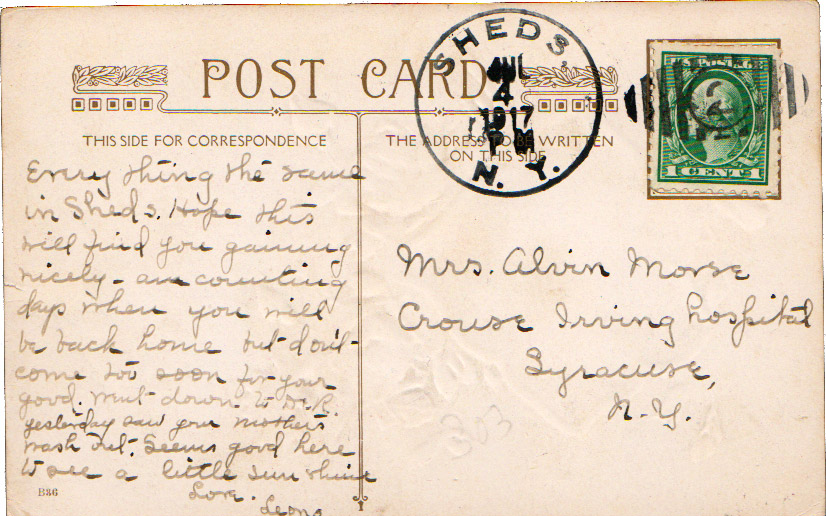 POST CARD
SHEDS,
JUL
4
1917
P M
N. Y.
THIS SIDE FOR CORRESPONDENCE
THE ADDRESS TO BE WRITTEN
ON THIS SIDE
U.S. POSTAGE
1 CENT 1
Every thing the same
in Sheds. Hope this
will find you gaining
nicely - are counting
days when you will
be back home but don't
come too soon for your
good. Went down to DeR.
yesterday saw your mother's
wash out. Seems good here
to see a little sun shine
Love.
Leona
Mrs. Alvin Morse
Crouse Irving hospital
Syracuse,
N.Y.
303
B36